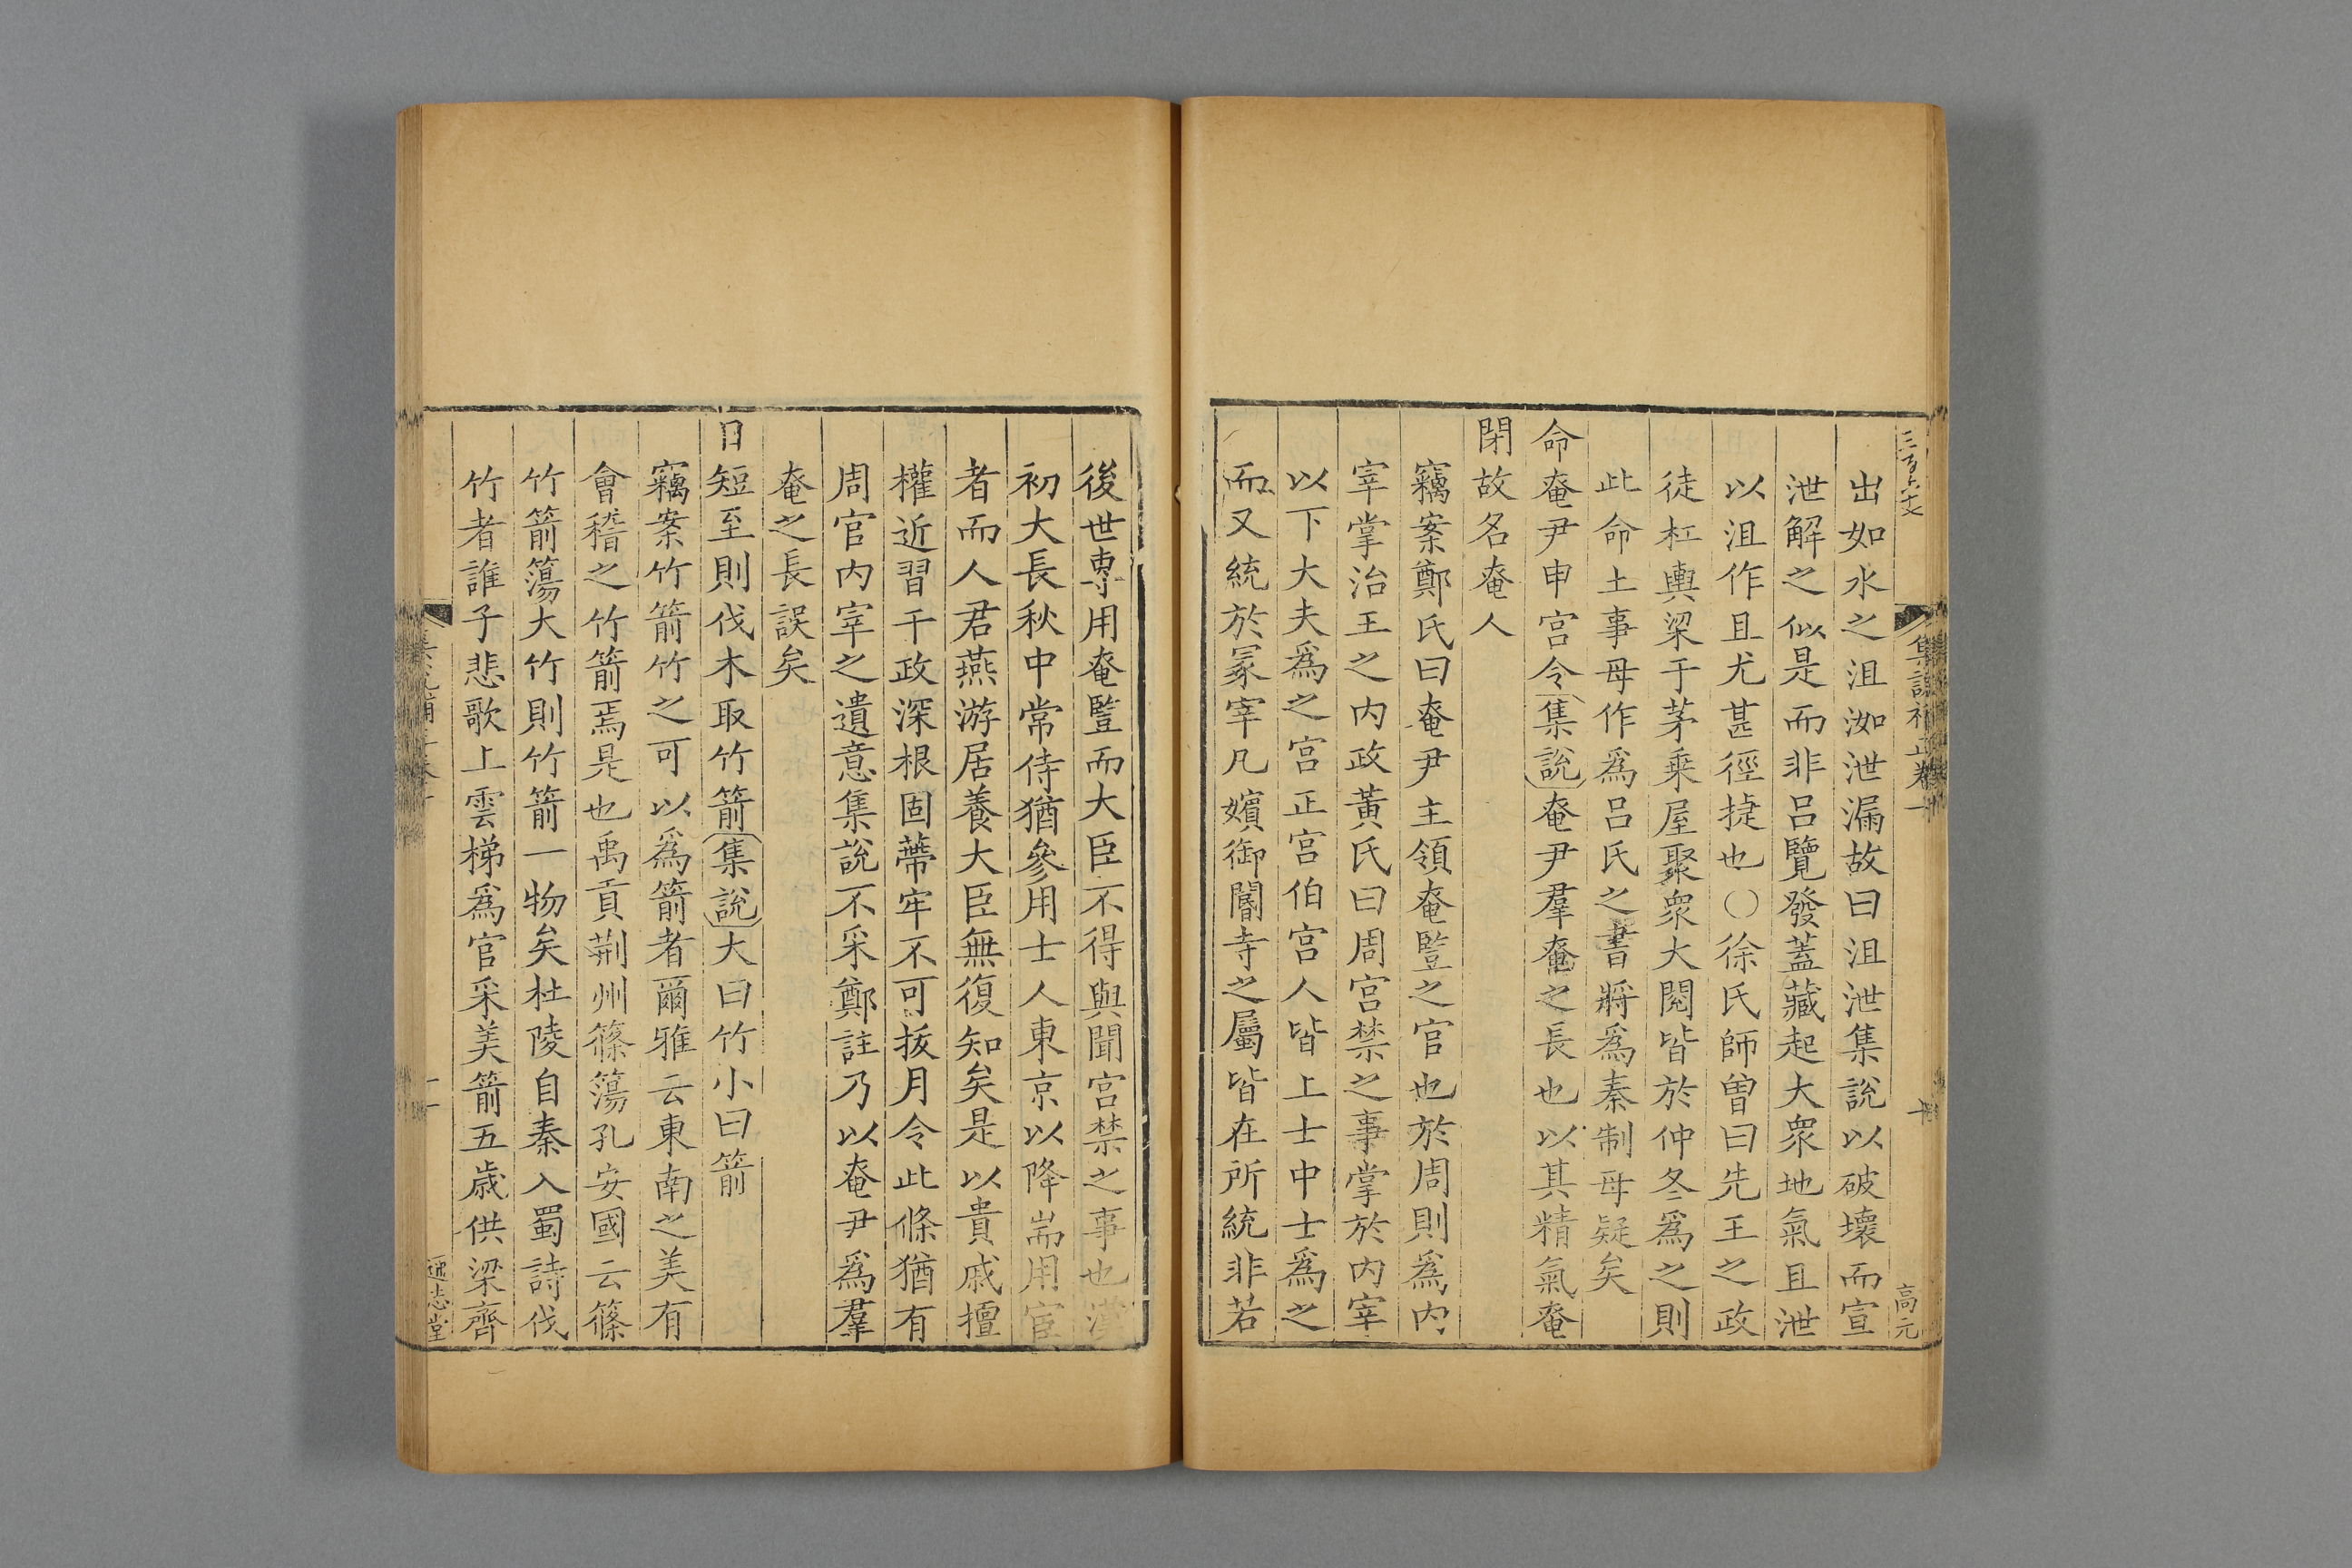 出如水之沮洳泄漏故曰沮泄集說以破壞而宣
泄解之似是而非呂覽發蓋藏起大衆地氣且泄
以沮作且尤甚徑捷也〇徐氏師曽曰先王之政
徒杠輿梁于茅乗屋聚衆大閱皆於仲冬爲之則
此命土事毋作爲呂氏之書將爲秦制毋疑矣
命奄尹申宮令集說奄尹羣奄之長也以其精氣奄
閉故名奄人
竊案鄭氏曰奄尹主領奄豎之官也於周則爲内
宰掌治王之内政黃氏曰周宮禁之事掌於内宰
以下大夫爲之宮正宮伯宮人皆上士中士爲之
而又統於冢宰凡嬪御閽寺之屬皆在所統非若
後世専用奄豎而大臣不得與聞宮禁之事也漢
初大長秋中常侍猶參用士人東京以降耑用宦
者而人君燕游居養大臣無復知矣是以貴戚擅
權近習干政深根固蔕牢不可拔月令此條猶有
周官内宰之遺意集說不采鄭註乃以奄尹爲羣
奄之長誤矣
日短至則伐木取竹箭集說大曰竹小曰箭
竊案竹箭竹之可以爲箭者爾雅云東南之美有
會稽之竹箭焉是也禹貢荆州篠簜孔安國云篠
竹箭簜大竹則竹箭一物矣杜陵自秦入蜀詩伐
竹者誰子悲歌上雲梯爲官采美箭五歲供梁齊
集說補正卷十
高元
通志堂